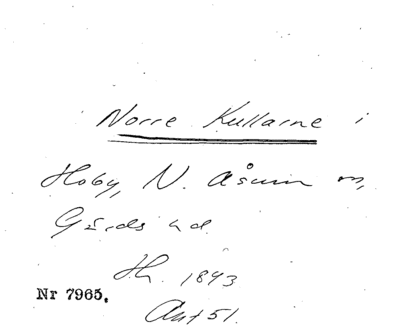 Norre Kullarne i
Hoby, N. Åsum sn,
Gärds hd.
Hr. 1843
Nr 7965.
Akt 51.